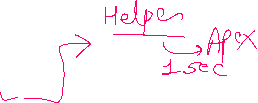 Helper
Apex
1 sec